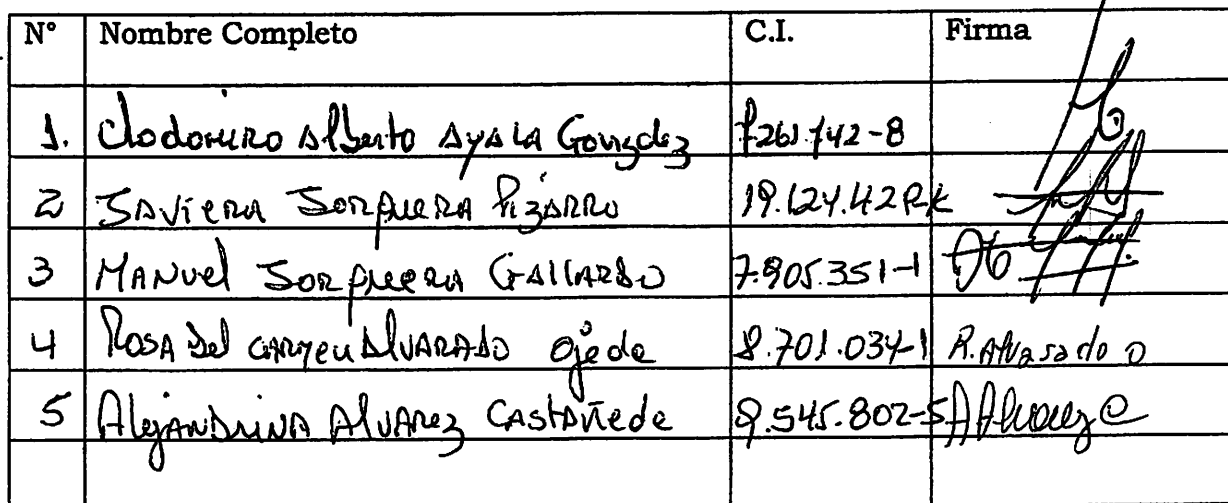 N° Nombre Completo C.I. Firma
1. Clodomiro Alberto Ayala González 7261.742-8
2 Javiera Jorquera Pizarro
3 Manuel Jorquera Gallardo 7.905.351-1
4 Rosa Del Carmen Alvarado Ojeda 8.701.034-1 R. Alvarado O
5 Alejandrina Alvarez Castañeda 9.545.802-5 A Alvarez C